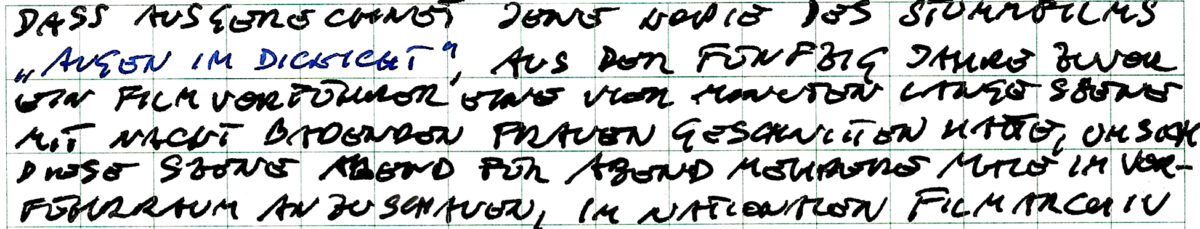 DASS AUSGERECHNET JENE KOPIE DES STUMMFILMS
„AUGEN IM DICKICHT“, AUS DER FÜNFZIG JAHRE ZUVOR
EIN FILMVORFÜHRER EINE VIER MINUTEN LANGE SZENE
MIT NACKT BADENDEN FRAUEN GESCHNITTEN HATTE, UM SICH
DIESE SZENE ABEND FÜR ABEND MEHRERE MALE IM VOR-
FÜHRRAUM ANZUSCHAUEN, IM NATIONALEN FILMARCHIV